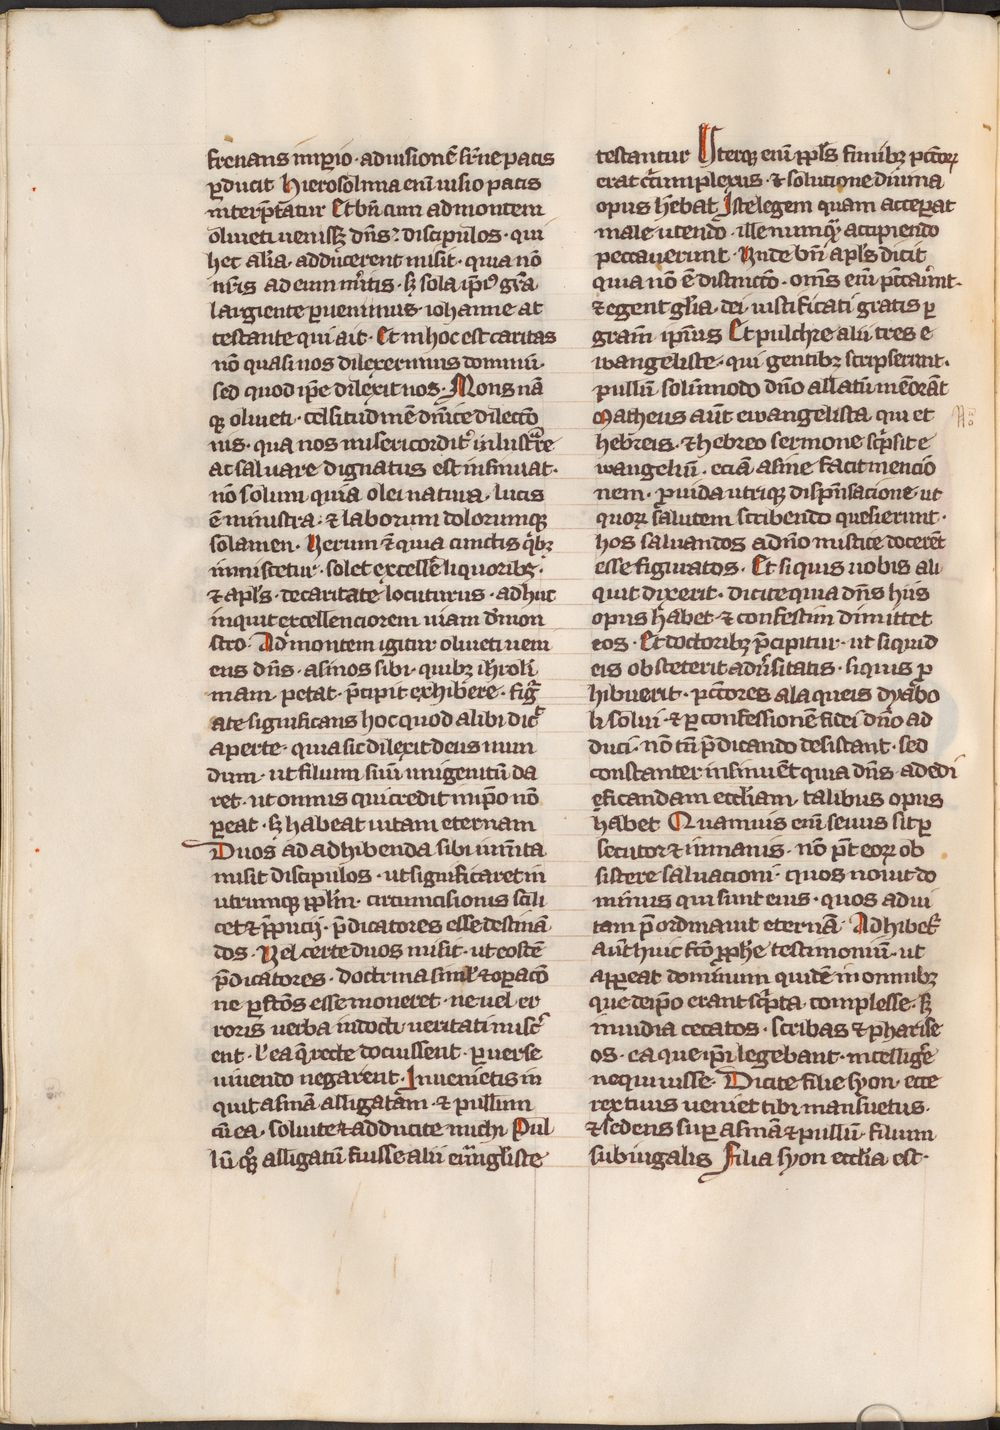 frenans imperio · ad uisionē sup̄ne pacis
ꝑducit Hierosolima eni͂ uisio pacis
interp̄tatur Et bn̄ cum ad montem
oliueti uenissꝫ dn̄s · discipulos · qui
hec alia · adducerent misit · quia nō
nr̄is ad eum mr̄itis · sꝫ sola ip̄iꝰ gr̄a
largiente ꝑuenimus · iohanne at
testante qui ait · Et in hoc est caritas
nō quasi nos dilexerimus dominū ·
sed quod ip̄e dilexit nos · Mons nā
qꝫ oliueti · celsitudinē dn̄ice dilectō
nis · qua nos misericorditͬ inlustrare
ac saluare dignatus est insinuat ·
nō solum quia olei natura · lucis
ē ministra · ⁊ laborum dolorumqꝫ
solamen · Verum ⁊ quia cunctis qͥbꝫ
inmiscetur · solet excellē liquoribꝫ ·
⁊ apl̄s · de caritate locuturus · adhuc
inquit excellenciorem uiam demon
stro · Ad montem igitur oliueti ueni
ens dn̄s · asinos sibi · quibꝫ ih̄roli
mam · petat · p̄cipit exhibere · figͬ
ate significans hoc quod alibi dicͬ
aperte · quia sic dilexit deus mun
dum · ut filium suū unigenitū da
ret · ut omnis qui credit in ip̄o nō
ꝑeat · sꝫ habeat uitam eternam
Duos ad adhibenda sibi iumēta
misit discipulos · ut significaret in
utrumqꝫ pp̄lm̄ · circumcisionis scili
cet ⁊ p̄pucij · p̄dicatores esse destinā
dos · Vel certe duos misit · ut eosdē
p̄dicatores · doctrina simul ⁊ oꝑacō
ne ꝑfc̄os esse moneret · ne uel er
roris uerba indocti ueritati miscͬ
ent · l̓ ea q̄ recte docuissent · ꝑuerse
uiuendo negarent · Inuenietis in
quit asinā alligatam · ⁊ pullum
cū ea · soluite ⁊ adducite michi Pul
lū qͦꝫ alligatū fuisse alii eu͂ngliste
testantur Uterqꝫ eni͂ pp̄ls funibꝫ pctōrꝝ
erat circūplexus · ⁊ solucione diuina
opus h̄ebat Iste legem quam acceperat
male utendo · ille numqͣꝫ accipiendo
peccauerunt · Vnde bn̄ apl̄s dicit
quia nō ē distinctō · om̄s eni͂ pcc̄aūnt ·
⁊ egent gl̄ia · dei · iustificati gratis ꝑ
gram̄ ipsius Et pulchre alii tres e
wangeliste · qui gentibꝫ scripserunt ·
pullū solūmodo dn̄o allatū memorāt
Matheus aut̄ ewangelista · qui et
hebreis · ⁊ hebreo sermone scͥpsit e
wangeliū · eciā asine facit mencio
nem · ꝓuida utriqꝫ dispn̄sacione · ut
quoꝝ salutem scribendo quesierunt ·
hos saluandos a dn̄o mistice docerēt
esse figuratos · Et si quis uobis ali
quit dixerit · dicite quia dn̄s hiis
opus habet · ⁊ confestim dimittet
eos · Et doctoribꝫ p̄cipitur · ut si quid
eis obsteterit aduͬsitatis · si quis ꝓ
hibuerit · pctōres a laqueis dyabo
li solui · ⁊ ꝑ confessionē fidei dn̄o ad
duci · nō tn̄ p̄dicando desistant · sed
constanter insinuēt quia dn̄s · ad edi
ficandam eccl̄iam · talibus opus
habet Quamuis eni͂ seuus sit ꝑ
secutor ⁊ inmanis · nō pōt eoꝝ ob
sistere saluacioni · quos nouit do
minus qui sunt eius · quos ad ui
tam p̄ordinauit eternā · Adhibetͬ
aut̄ huic fcō pp̄he testimoniū · ut
appareat dominum quidē in omnibꝫ
que de ip̄o erant scͥpta · complesse · sꝫ
inuidia cecatos · scribas ⁊ pharise
os · ea que ip̄i legebant · intelligͬe
nequiuisse · Dicite filie syon · ecce
rex tuus ueniet tibi mansuetus ·
⁊ sedens suꝑ asinā ⁊ pullū · filium
subiugalis Filia syon eccl̄ia est ·